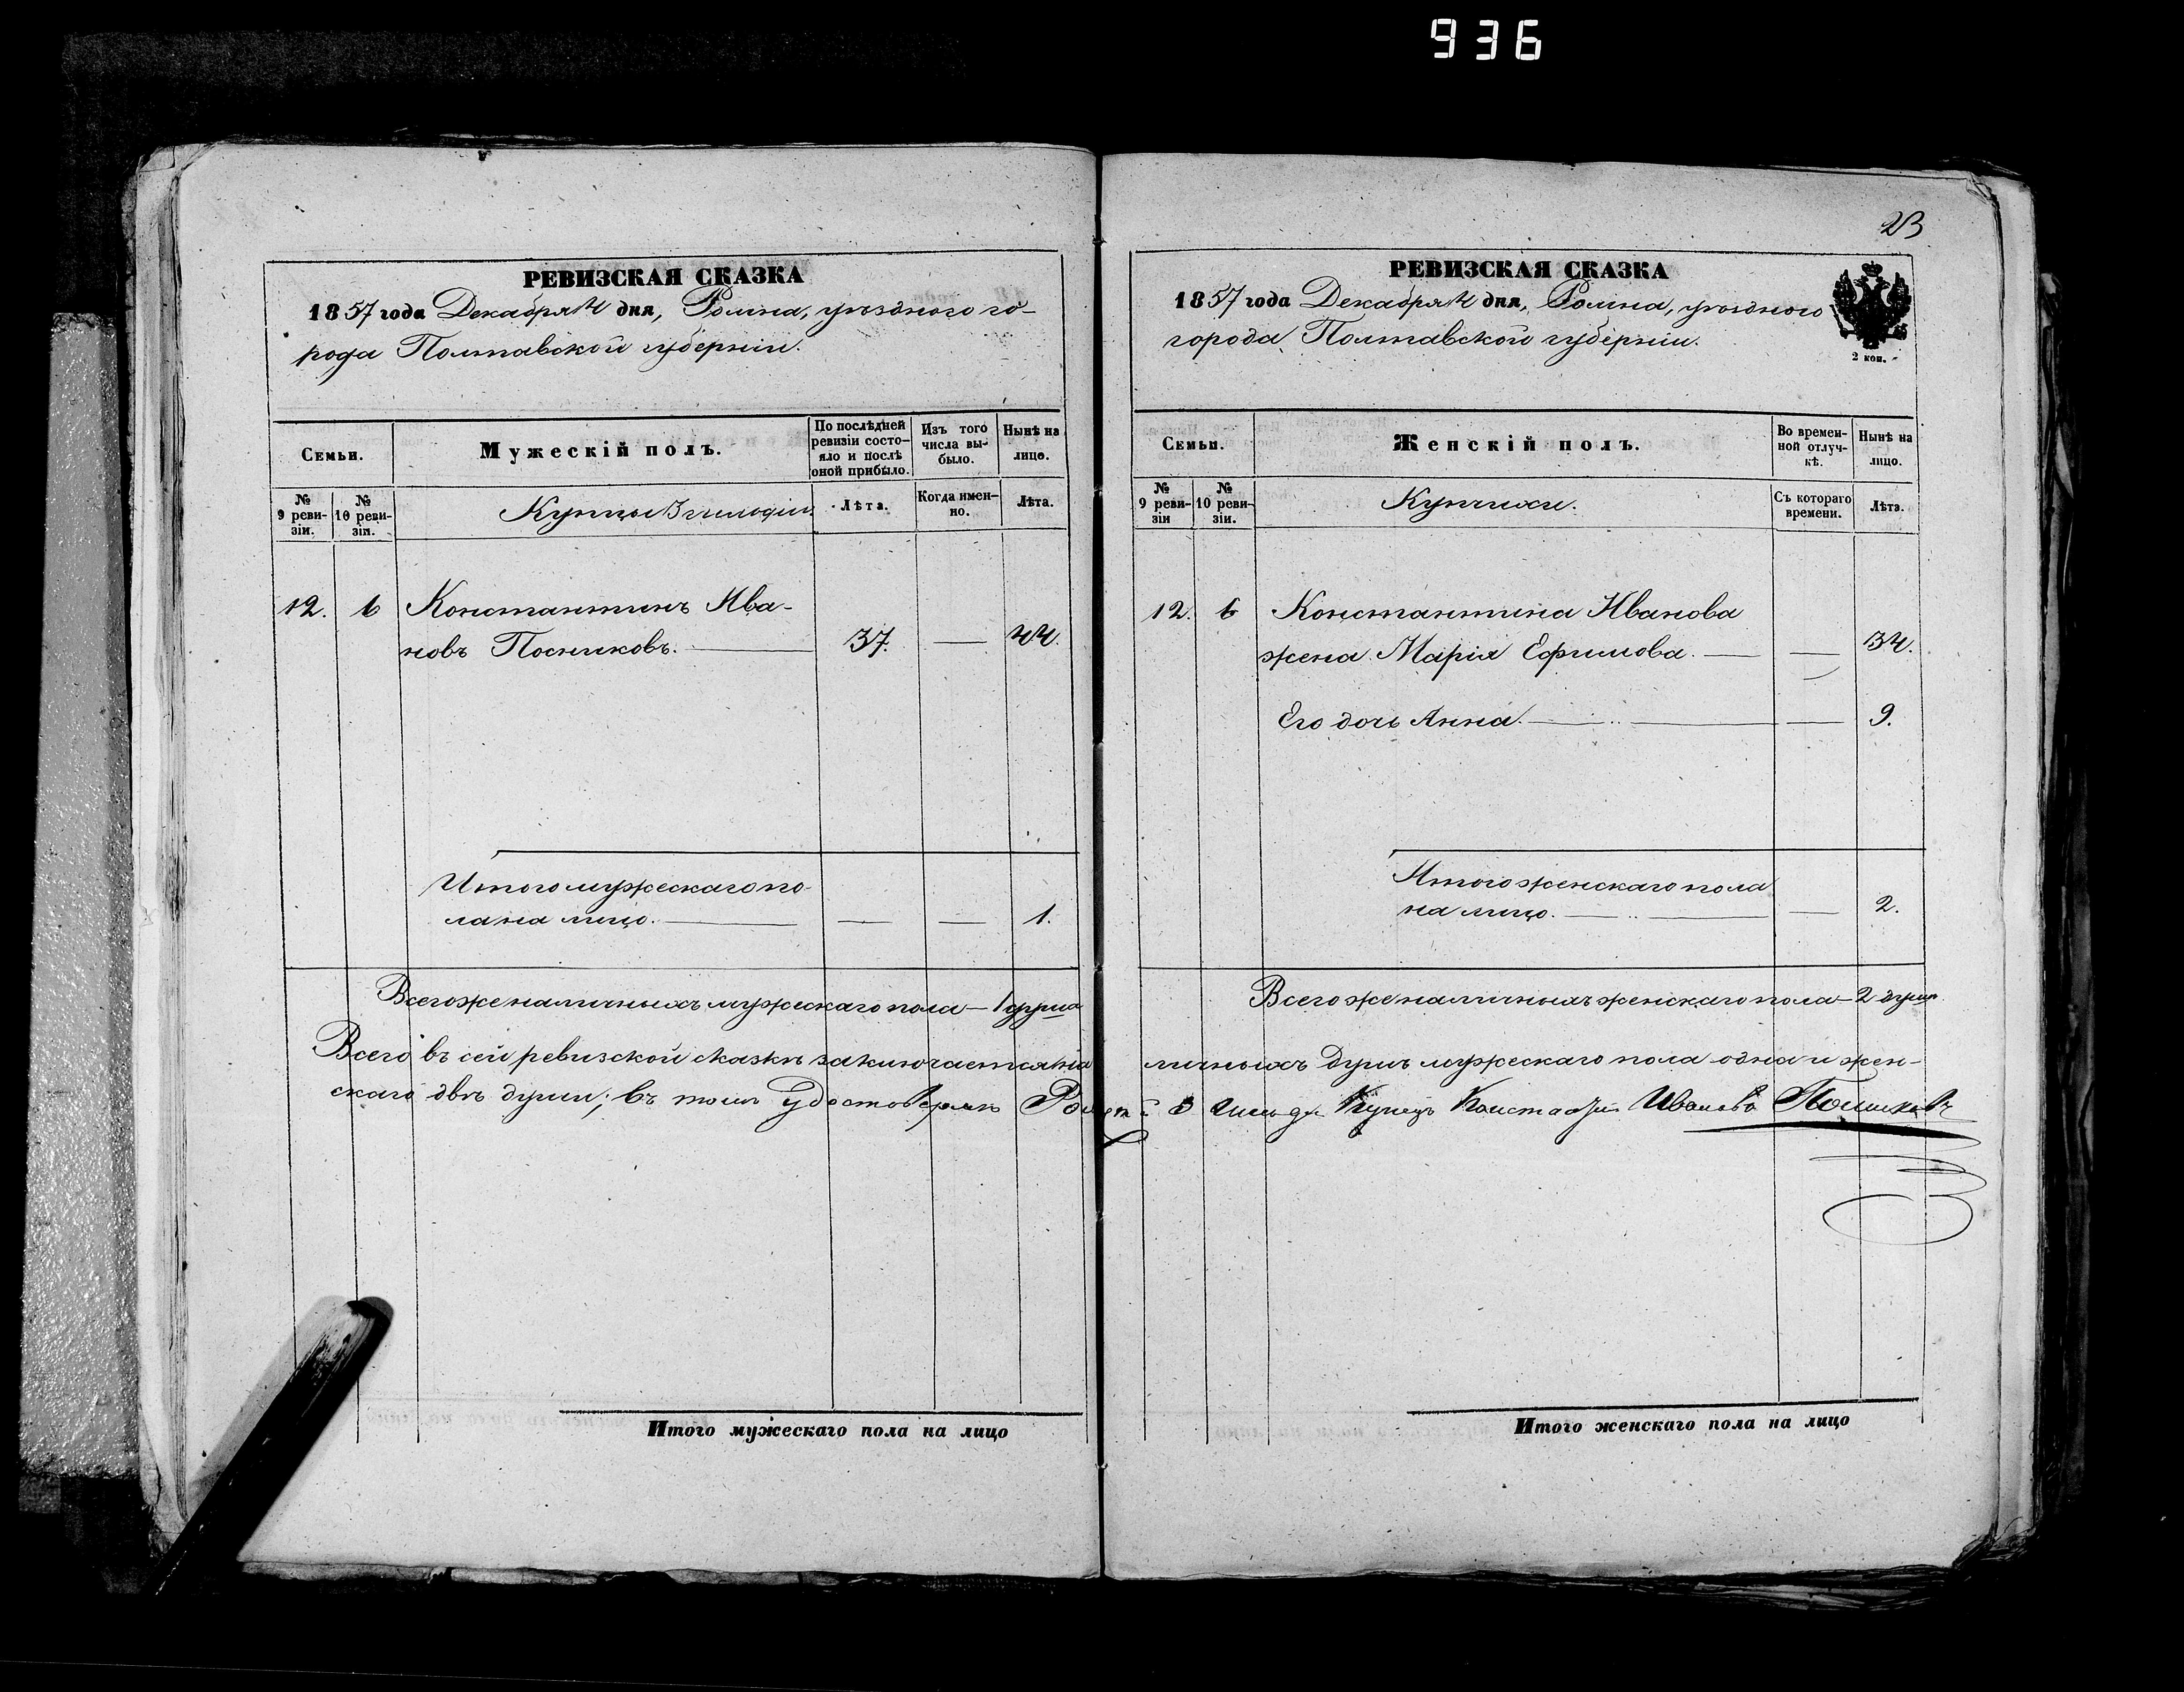 936
23
РЕВИЗСКАЯ СКАЗКА
1857 года Декабря 4 дня, Ромна, уѣзднаго го-
рода Полтавской губерніи.
Семьи.
Мужескій полъ.
По послѣдней ревизіи состо-яло и послѣ оной прибыло.
Изъ того числа вы-было.
Нынѣ на лицо.
№ 9 реви-зіи.
№ 10 реви-зіи.
Купцы 3 гильдіи
Лѣта.
Когда имен-но.
Лѣта.
12. 6 Константинъ Ива-
новъ Посниковъ. 37. — 44.
Итого мужескаго по-
ла на лицо. — — 1.
Всего же наличныхъ мужескаго пола — 1 душа
РЕВИЗСКАЯ СКАЗКА
1857 года Декабря 4 дня, Ромна, уѣзднаго
города Полтавской губерніи.
2 коп.
Семьи.
Женскій полъ.
Во времен-ной отлуч-кѣ.
Нынѣ на лицо.
№ 9 реви-зіи
№ 10 реви-зіи.
Купчихи.
Съ котораго времени.
Лѣта.
12. 6 Константина Иванова
жена Марія Ефимова. — 34.
Его дочь Анна. — 9.
Итого женскаго пола
на лицо. — 2.
Всего же наличныхъ женскаго пола — 2 души
Всего въ сей ревизской сказкѣ заключается на личныхъ душъ мужескаго пола одна и жен-
скаго двѣ души; въ томъ удостовѣряю 3 Гильди Купецъ Иванов
Итого мужескаго пола на лицо
Итого женскаго пола на лицо